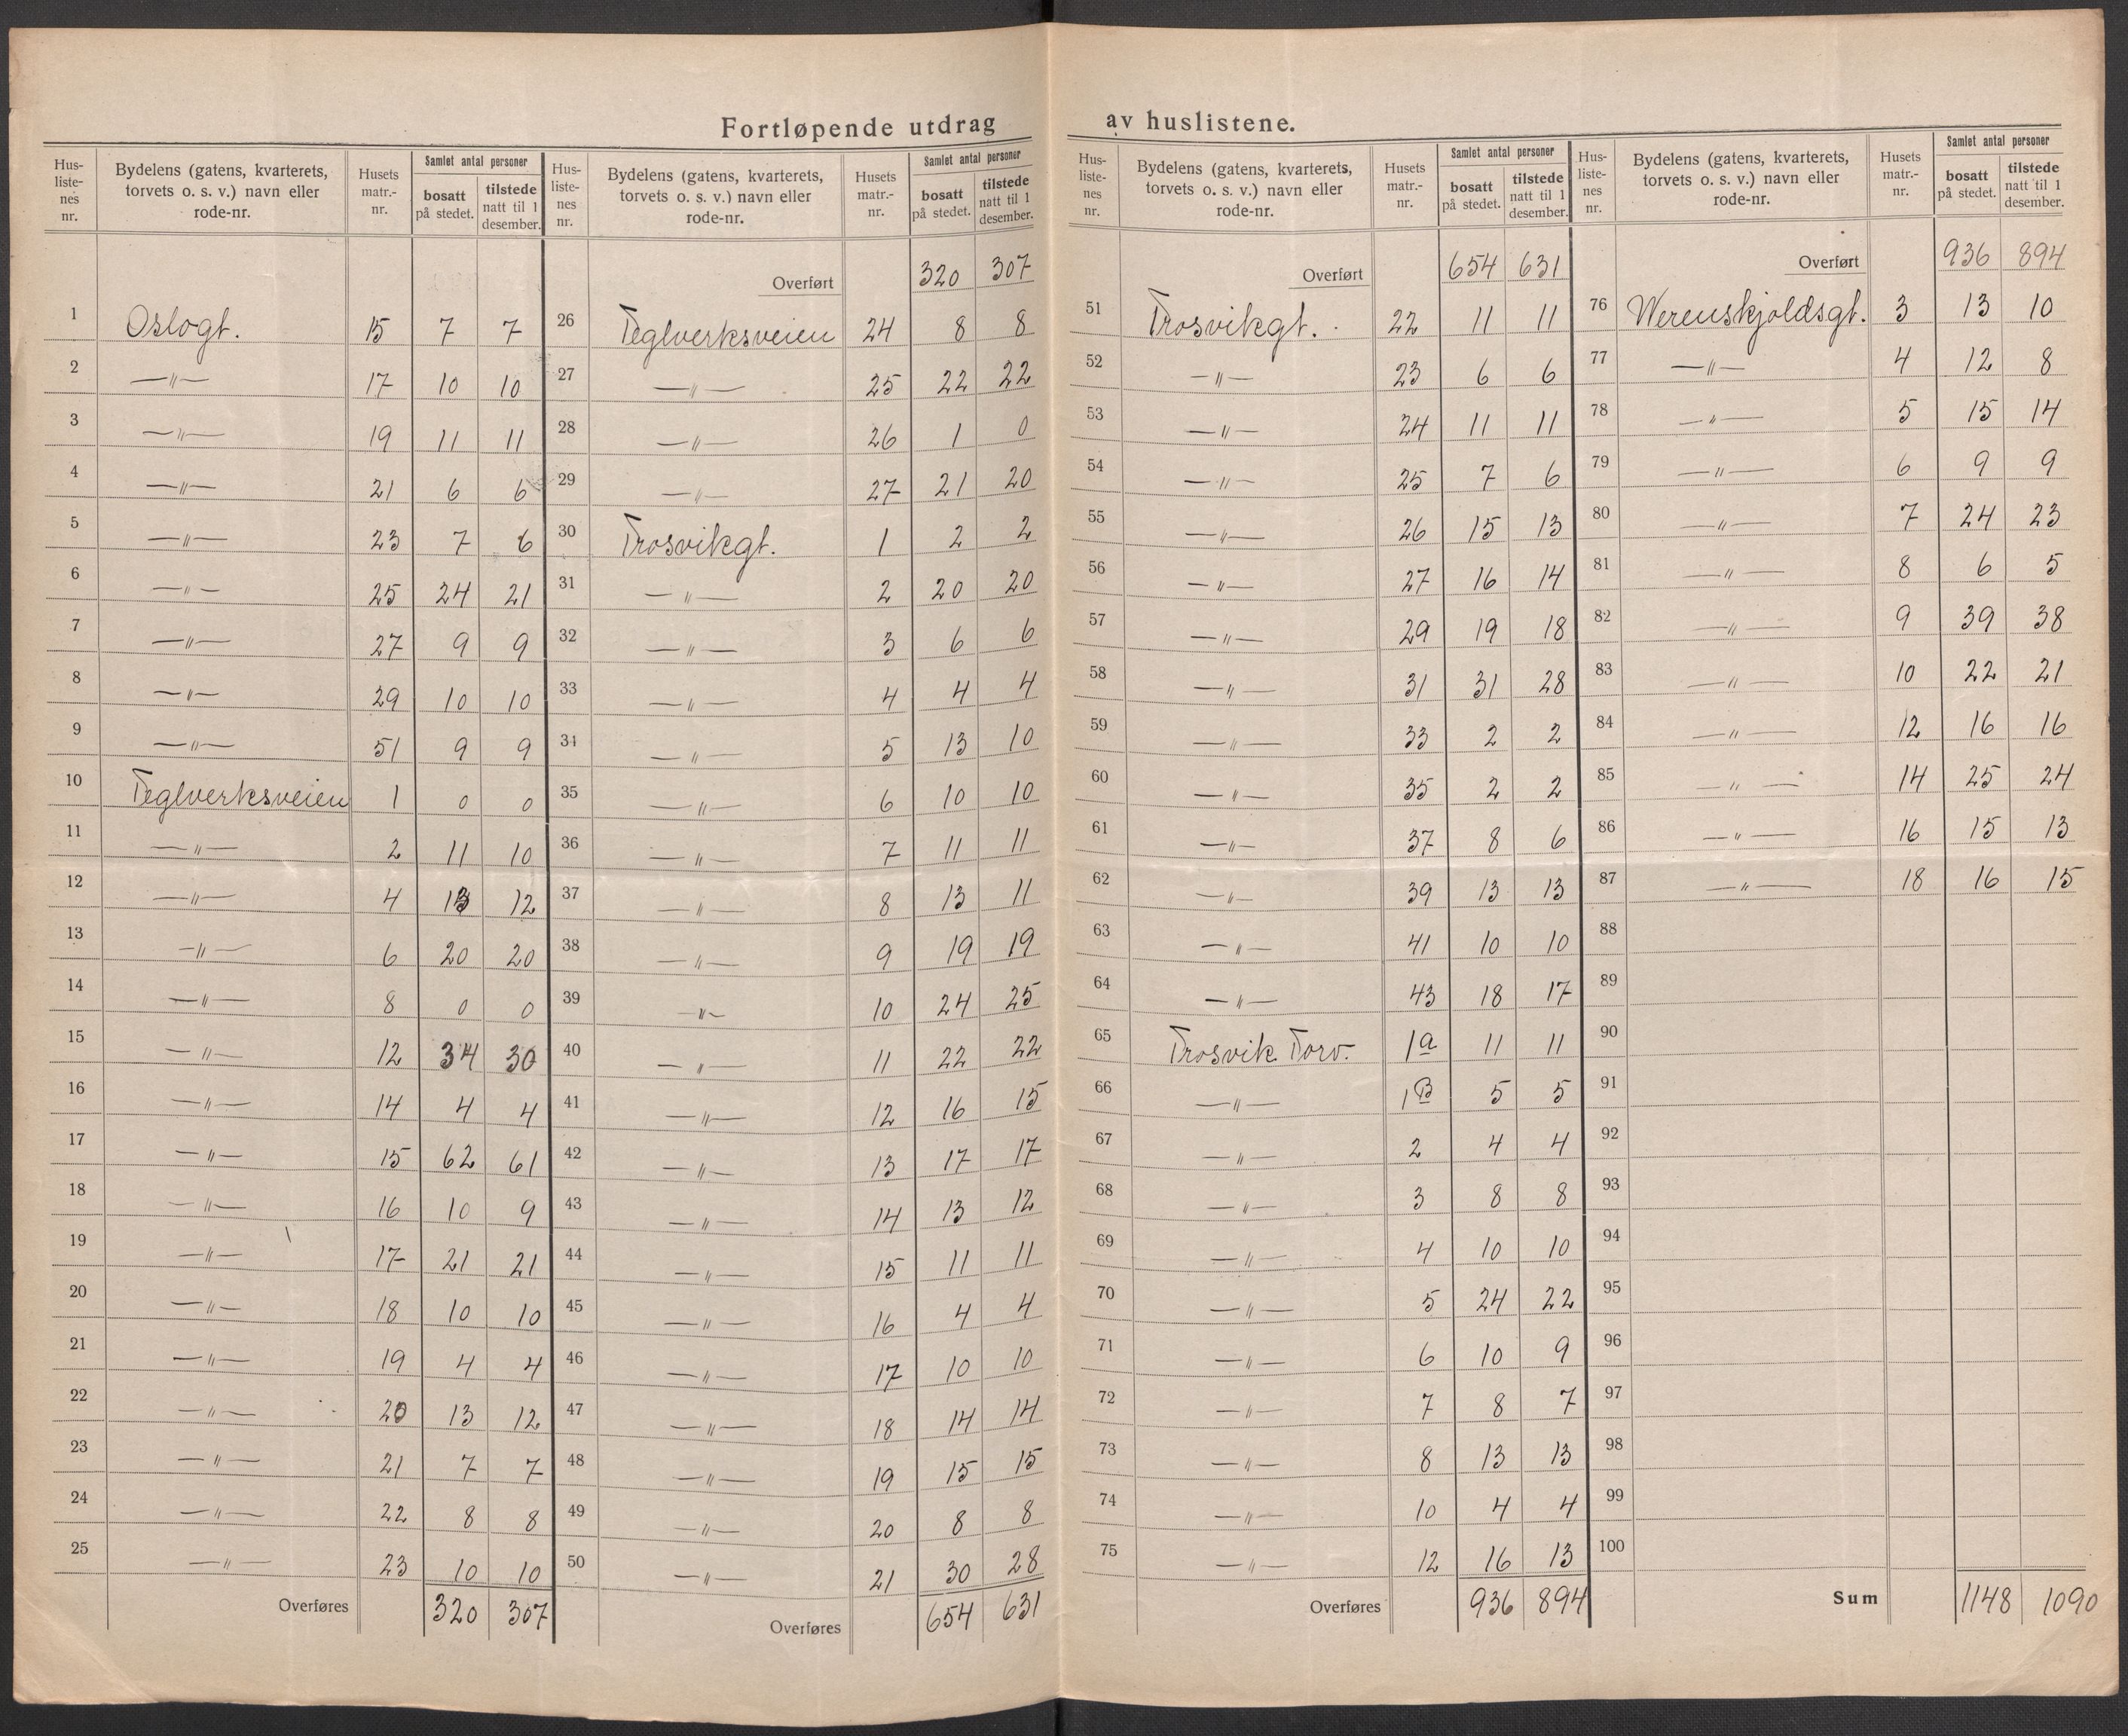 Fortløpende utdrag av huslistene.
Hus-listenes nr. | Bydelens (gatens, kvarterets, torvets o. s. v.) navn eller rode-nr. | Husets matr.-nr. | Samlet antal personer bosatt på stedet. | tilstede natt til 1 desember.
1 Oslogt. 15 7 7
2 —〃— 17 10 10
3 —〃— 19 11 11
4 —〃— 21 6 6
5 —〃— 23 7 6
6 —〃— 25 24 21
7 —〃— 27 9 9
8 —〃— 29 10 10
9 —〃— 51 9 9
10 Teglverksveien 1 0 0
11 —〃— 2 11 10
12 —〃— 4 13 12
13 —〃— 6 20 20
14 —〃— 8 0 0
15 —〃— 12 34 30
16 —〃— 14 4 4
17 —〃— 15 62 61
18 —〃— 16 10 9
19 —〃— 17 21 21
20 —〃— 18 10 10
21 —〃— 19 4 4
22 —〃— 20 13 12
23 —〃— 21 7 7
24 —〃— 22 8 8
25 —〃— 23 10 10
Overføres 320 307
Hus-liste-nes nr. | Bydelens (gatens, kvarterets, torvets o. s. v.) navn eller rode-nr. | Husets matr.-nr. | Samlet antal personer bosatt på stedet. | tilstede natt til 1 desember.
Overført 320 307
26 Teglverksveien 24 8 8
27 —〃— 25 22 22
28 —〃— 26 1 0
29 —〃— 27 21 20
30 Trosvikgt. 1 2 2
31 —〃— 2 20 20
32 —〃— 3 6 6
33 —〃— 4 4 4
34 —〃— 5 13 10
35 —〃— 6 10 10
36 —〃— 7 11 11
37 —〃— 8 13 11
38 —〃— 9 19 19
39 —〃— 10 24 25
40 —〃— 11 22 22
41 —〃— 12 16 15
42 —〃— 13 17 17
43 —〃— 14 13 12
44 —〃— 15 11 11
45 —〃— 16 4 4
46 —〃— 17 10 10
47 —〃— 18 14 14
48 —〃— 19 15 15
49 —〃— 20 8 8
50 —〃— 21 30 28
Overføres 654 631
Hus-liste-nes nr. | Bydelens (gatens, kvarterets, torvets o. s. v.) navn eller rode-nr. | Husets matr.-nr. | Samlet antal personer bosatt på stedet. | tilstede natt til 1 desember.
Overført 654 631
51 Trosvikgt. 22 11 11
52 —〃— 23 6 6
53 —〃— 24 11 11
54 —〃— 25 7 6
55 —〃— 26 15 13
56 —〃— 27 16 14
57 —〃— 29 19 18
58 —〃— 31 31 28
59 —〃— 33 2 2
60 —〃— 35 2 2
61 —〃— 37 8 6
62 —〃— 39 13 13
63 —〃— 41 10 10
64 —〃— 43 18 17
65 Trosvik Torv. 1a 11 11
66 —〃— 1B 5 5
67 —〃— 2 4 4
68 —〃— 3 8 8
69 —〃— 4 10 10
70 —〃— 5 24 22
71 —〃— 6 10 9
72 —〃— 7 8 7
73 —〃— 8 13 13
74 —〃— 10 4 4
75 —〃— 12 16 13
Overføres 936 894
Hus-liste-nes nr. | Bydelens (gatens, kvarterets, torvets o. s. v.) navn eller rode-nr. | Husets matr.-nr. | Samlet antal personer bosatt på stedet. | tilstede natt til 1 desember.
Overført 936 894
76 Werenskjoldsgt. 3 13 10
77 —〃— 4 12 8
78 —〃— 5 15 14
79 —〃— 6 9 9
80 —〃— 7 24 23
81 —〃— 8 6 5
82 —〃— 9 39 38
83 —〃— 10 22 21
84 —〃— 12 16 16
85 —〃— 14 25 24
86 —〃— 16 15 13
87 —〃— 18 16 15
88
89
90
91
92
93
94
95
96
97
98
99
100
Sum 1148 1090